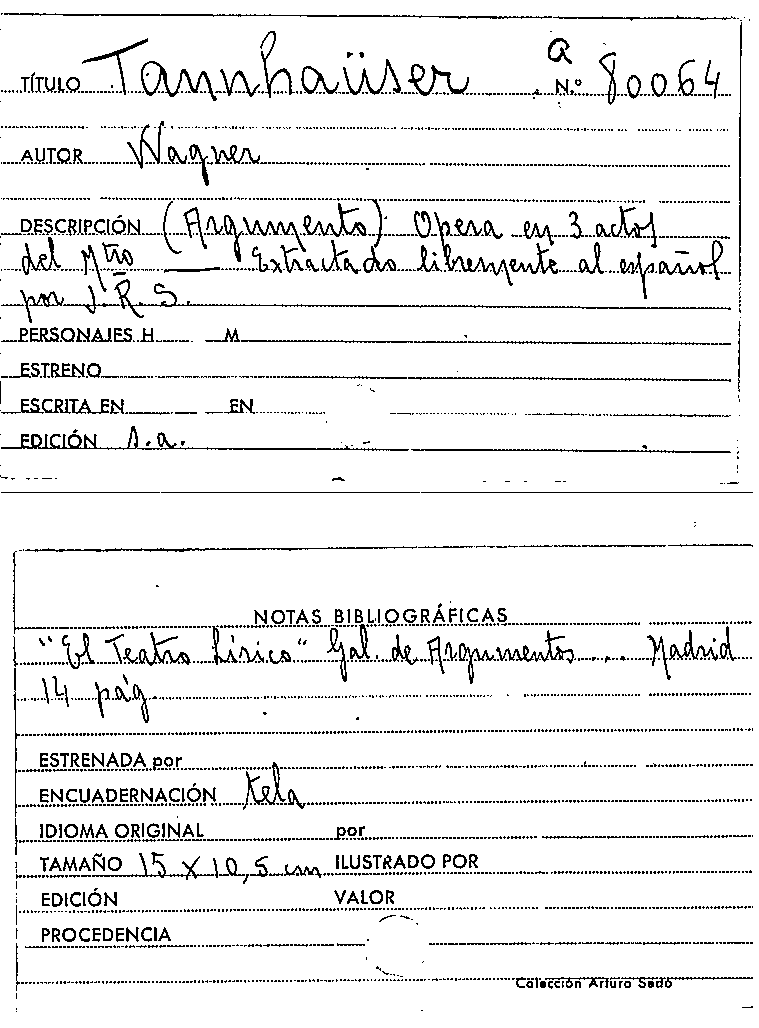 a
TÍTULO Tannhaüser N.º 80064
AUTOR Wagner
DESCRIPCIÓN (Argumento) Opera en 3 actos
del Mtro ___ Extractado libremente al español
por J. R. S.
PERSONAJES H M
ESTRENO
ESCRITA EN EN
EDICIÓN s.a.
NOTAS BIBLIOGRÁFICAS
"El Teatro Lírico" Gal. de Argumentos ... Madrid
14 pág.
ESTRENADA por
ENCUADERNACIÓN tela
IDIOMA ORIGINAL por
TAMAÑO 15 x 10,5 cm ILUSTRADO POR
EDICIÓN VALOR
PROCEDENCIA
Colección Arturo Sedó